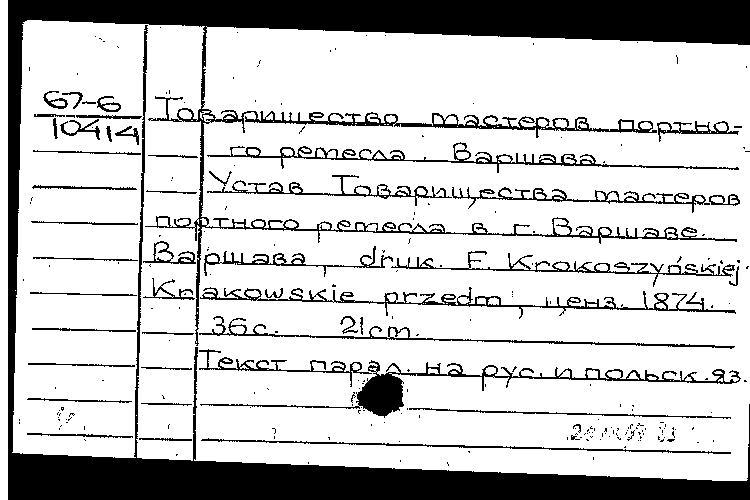 67-6
10414
Товарищество мастеров портно-
го ремесла. Варшава.
Устав Товарищества мастеров
портного ремесла в г. Варшаве.
Варшава, druk. F. Krokoszyńskiej.
Krakowskie przedm., ценз. 1874.
36 с. 21 cm.
Текст парал. на рус. и польск. яз.